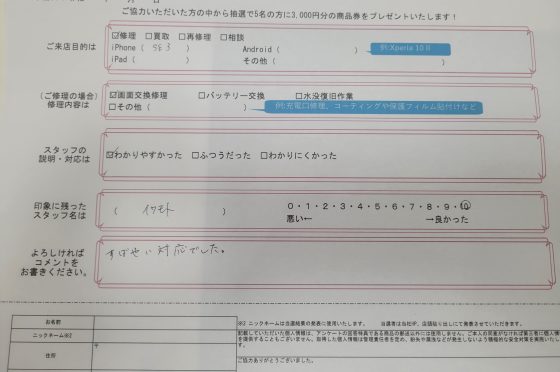 ご協力いただいた方の中から抽選で5名の方に3,000円分の商品券をプレゼントいたします！
ご来店目的は
☑修理 □買取 □再修理 □相談
iPhone（ SE3 ） Android（ ） 例:Xperia 10Ⅱ
iPad（ ） その他（ ）
（ご修理の場合）
修理内容は
☑画面交換修理 □バッテリー交換 □水没復旧作業
□その他（ ） 例:充電口修理、コーティングや保護フィルム貼付けなど
スタッフの
説明・対応は
☑わかりやすかった □ふつうだった □わかりにくかった
印象に残った
スタッフ名は
（ イワモト ）
0・1・2・3・4・5・6・7・8・9・10
悪い← →良かった
よろしければ
コメントを
お書きください。
すばやい対応でした。
お名前
ニックネーム※2
住所
〒
※2 ニックネームは当選結果の発表に使用いたします。 当選者は当社HP、店頭貼り出しにて発表させていただきます。
記載していただいた個人情報は、アンケートの回答特典である商品の郵送以外には使用しません。ご本人の同意がなければ第三者に個人情
ご協力ありがとうございました。